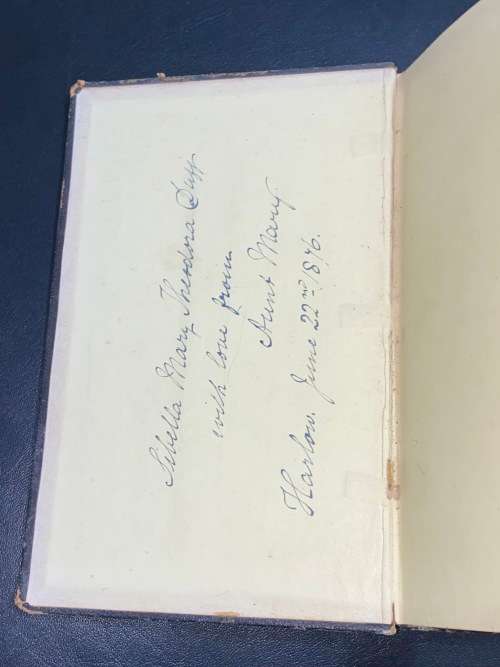 Sibella Mary Theodora Duff
with love from
Aunt Mary.
Harlow. June 22nd 1896.